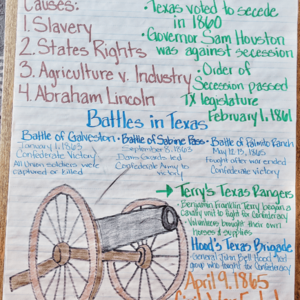 Causes:
1. Slavery
2. States Rights
3. Agriculture v. Industry
4. Abraham Lincoln
• Texas voted to secede
in 1860
• Governor Sam Houston
was against secession
• Order of
Secession passed
TX legislature
February 1, 1861
Battles in Texas
Battle of Galveston
January 1, 1863
Confederate Victory
All Union soldiers were
captured or killed
• Battle of Sabine Pass
September 8, 1863
Dowling led
Confederate Army to
victory
• Battle of Palmito Ranch
May 13, 1865
fought after war ended
Confederate Victory
Terry's Texas Rangers
• Benjamin Franklin Terry began a
cavalry unit to fight for Confederacy
• Volunteers brought their own
horses & supplies
Hood's Texas Brigade
General John Bell Hood led
group who fought for Confederacy
April 9, 1865